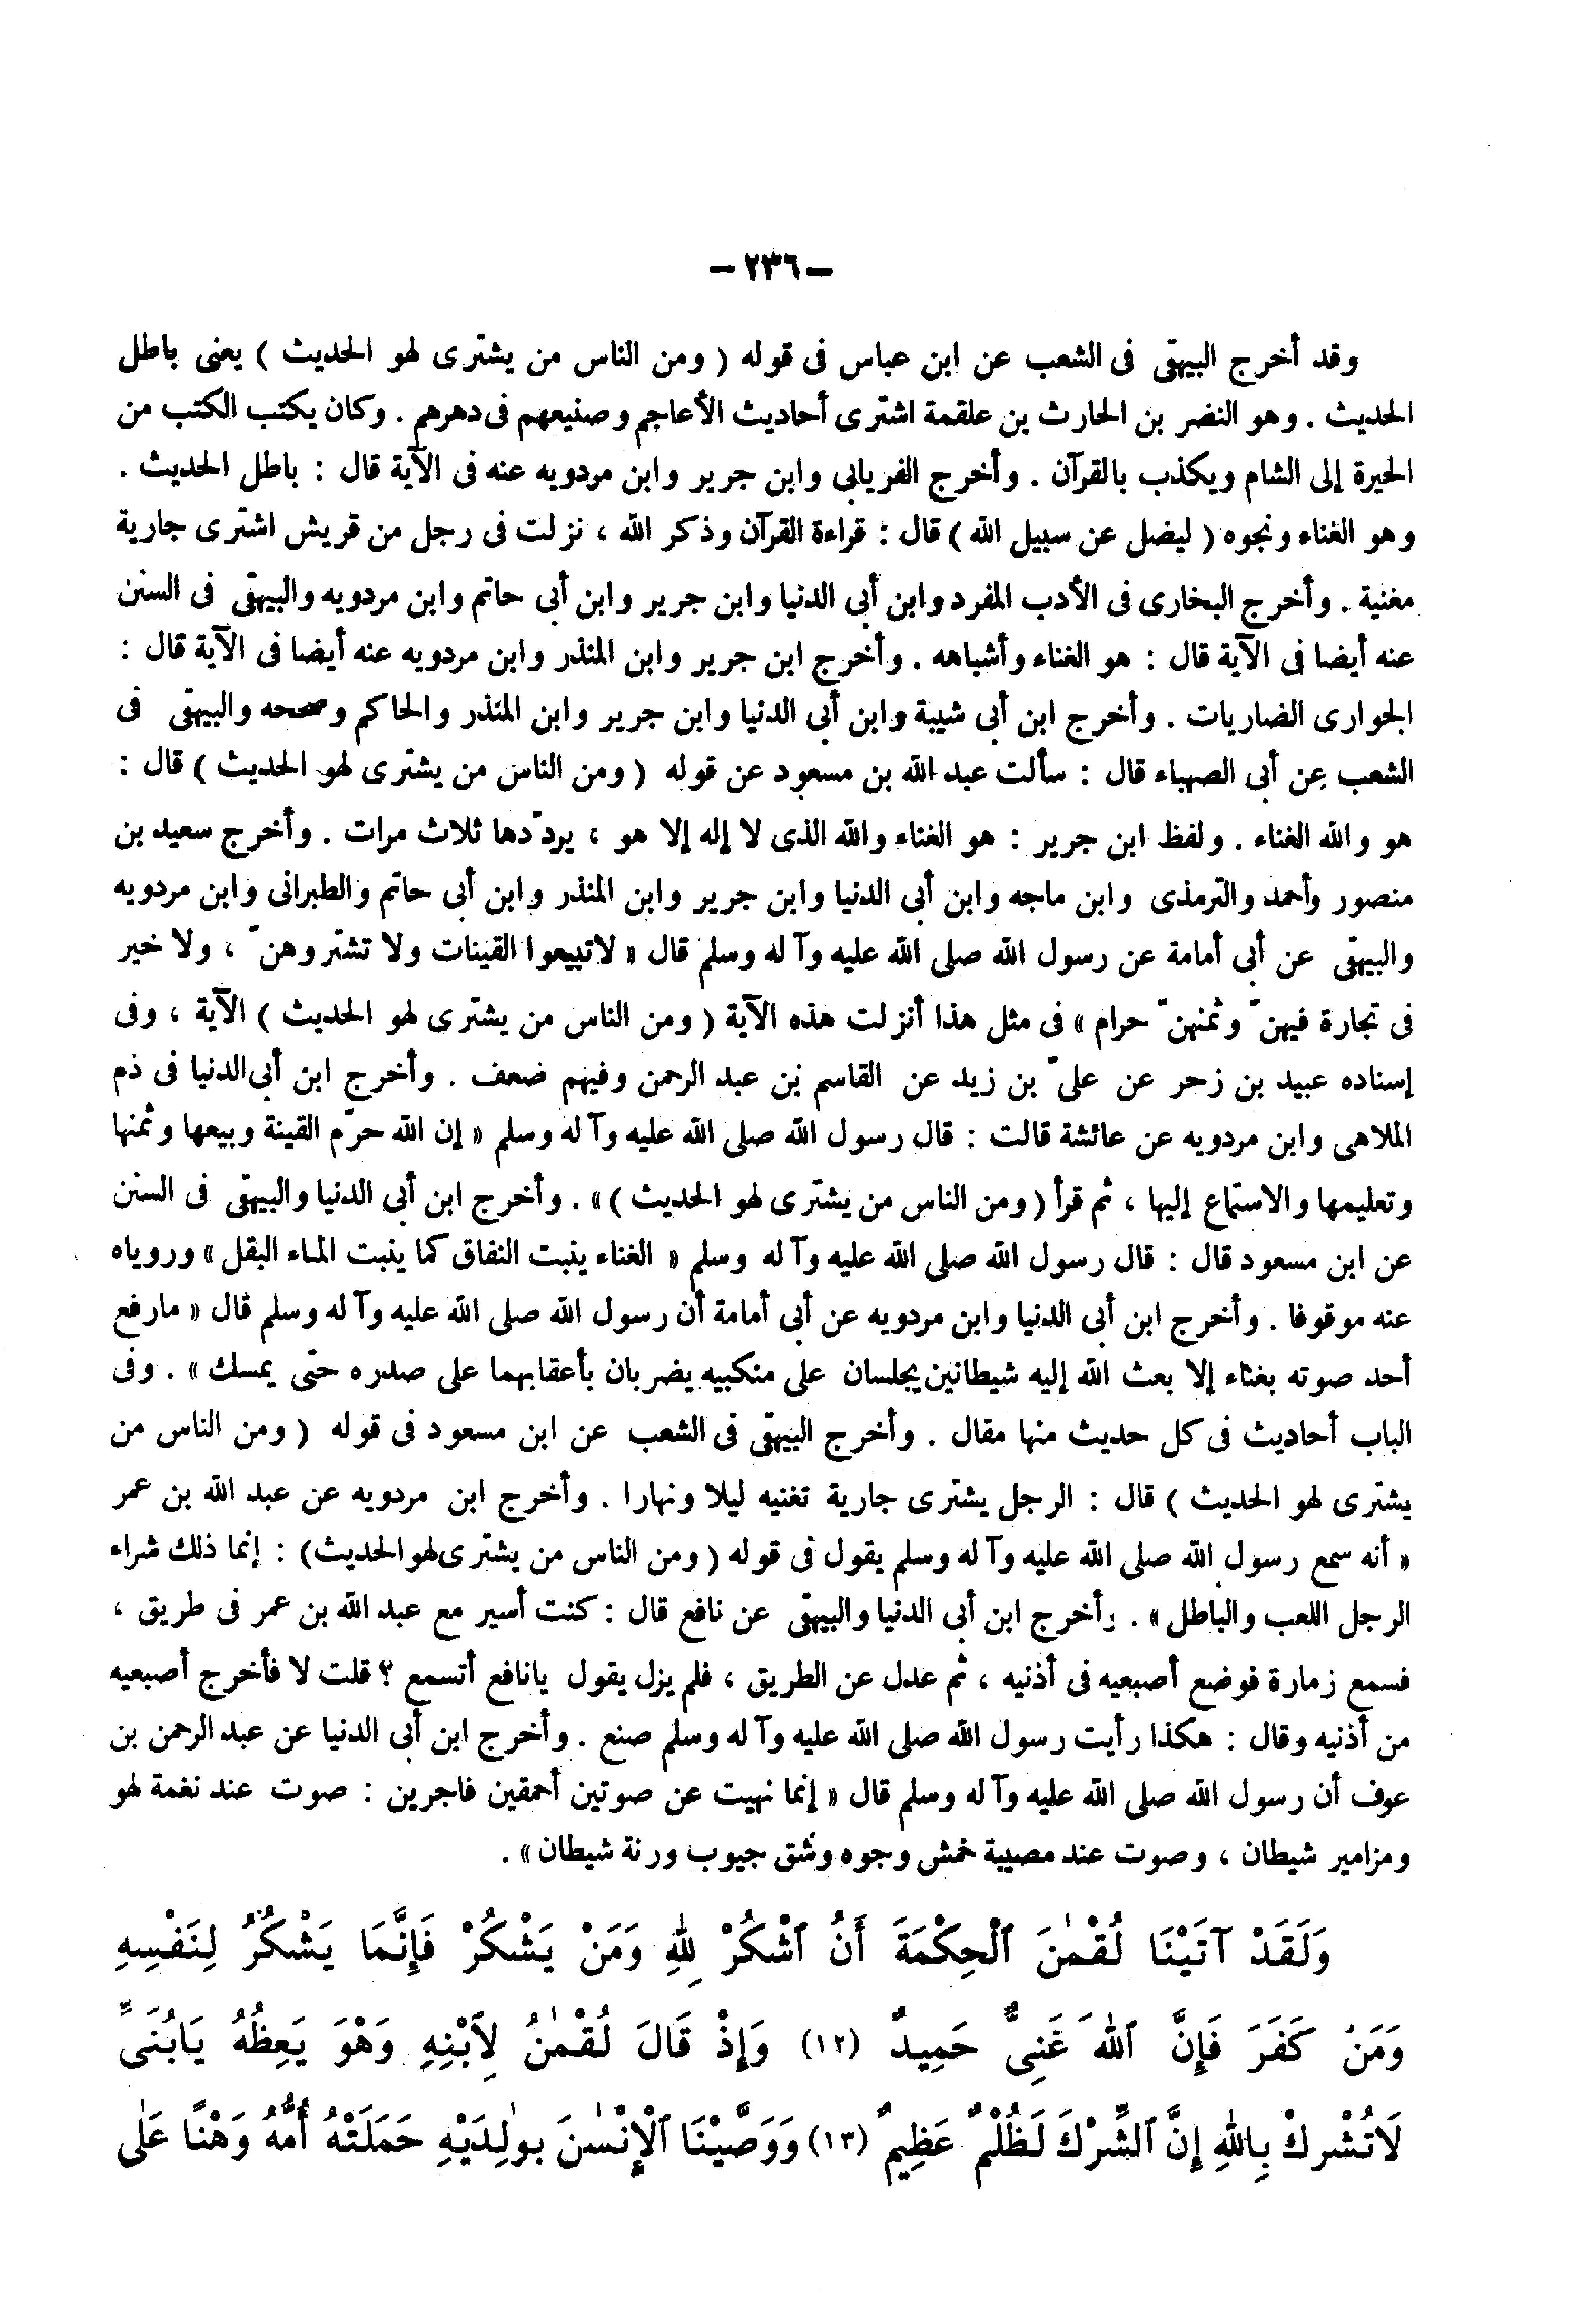 – ٢٣٦ –
وقد أخرج البيهقى فى الشعب عن ابن عباس فى قوله ( ومن الناس من يشترى لهو الحديث ) يعنى باطل
الحديث . وهو النضر بن الحارث بن علقمة اشترى أحاديث الأعاجم وصنيعهم فى دهرهم . وكان يكتب الكتب من
الحيرة إلى الشام ويكذب بالقرآن . وأخرج الفريابى وابن جرير وابن مردويه عنه فى الآية قال : باطل الحديث .
وهو الغناء ونحوه ( ليضل عن سبيل الله ) قال : قراءة القرآن وذكر الله ، نزلت فى رجل من قريش اشترى جارية
مغنية . وأخرج البخارى فى الأدب المفرد وابن أبى الدنيا وابن جرير وابن أبى حاتم وابن مردويه والبيهقى فى السنن
عنه أيضا فى الآية قال : هو الغناء وأشباهه . وأخرج ابن جرير وابن المنذر وابن مردويه عنه أيضا فى الآية قال :
الجوارى الضاربات . وأخرج ابن أبى شيبة وابن أبى الدنيا وابن جرير وابن المنذر والحاكم وصححه والبيهقى فى
الشعب عن أبى الصهباء قال : سألت عبد الله بن مسعود عن قوله ( ومن الناس من يشترى لهو الحديث ) قال :
هو والله الغناء . ولفظ ابن جرير : هو الغناء والله الذى لا إله إلا هو ، يردّدها ثلاث مرات . وأخرج سعيد بن
منصور وأحمد والترمذى وابن ماجه وابن أبى الدنيا وابن جرير وابن المنذر وابن أبى حاتم والطبرانى وابن مردويه
والبيهقى عن أبى أمامة عن رسول الله صلى الله عليه وآله وسلم قال « لاتبيعوا القينات ولا تشتروهنّ ، ولا خير
فى تجارة فيهنّ وثمنهنّ حرام » فى مثل هذا أنزلت هذه الآية ( ومن الناس من يشترى لهو الحديث ) الآية ، وفى
إسناده عبيد بن زحر عن علىّ بن زيد عن القاسم بن عبد الرحمن وفيهم ضعف . وأخرج ابن أبى الدنيا فى ذم
الملاهى وابن مردويه عن عائشة قالت : قال رسول الله صلى الله عليه وآله وسلم « إن الله حرّم القينة وبيعها وثمنها
وتعليمها والاستماع إليها ، ثم قرأ ( ومن الناس من يشترى لهو الحديث ) » . وأخرج ابن أبى الدنيا والبيهقى فى السنن
عن ابن مسعود قال : قال رسول الله صلى الله عليه وآله وسلم « الغناء ينبت النفاق كما ينبت الماء البقل » وروياه
عنه موقوفا . وأخرج ابن أبى الدنيا وابن مردويه عن أبى أمامة أن رسول الله صلى الله عليه وآله وسلم قال « مارفع
أحد صوته بغناء إلا بعث الله إليه شيطانين يجلسان على منكبيه يضربان بأعقابهما على صدره حتى يمسك » . وفى
الباب أحاديث فى كل حديث منها مقال . وأخرج البيهقى فى الشعب عن ابن مسعود فى قوله ( ومن الناس من
يشترى لهو الحديث ) قال : الرجل يشترى جارية تغنيه ليلا ونهارا . وأخرج ابن مردويه عن عبد الله بن عمر
« أنه سمع رسول الله صلى الله عليه وآله وسلم يقول فى قوله ( ومن الناس من يشترى لهو الحديث ) : إنما ذلك شراء
الرجل اللعب والباطل » . وأخرج ابن أبى الدنيا والبيهقى عن نافع قال : كنت أسير مع عبد الله بن عمر فى طريق ،
فسمع زمارة فوضع أصبعيه فى أذنيه ، ثم عدل عن الطريق ، فلم يزل يقول يانافع أتسمع ؟ قلت لا فأخرج أصبعيه
من أذنيه وقال : هكذا رأيت رسول الله صلى الله عليه وآله وسلم صنع . وأخرج ابن أبى الدنيا عن عبد الرحمن بن
عوف أن رسول الله صلى الله عليه وآله وسلم قال « إنما نهيت عن صوتين أحمقين فاجرين : صوت عند نغمة لهو
ومزامير شيطان ، وصوت عند مصيبة خمش وجوه وشق جيوب ورنة شيطان » .
وَلَقَدْ آتَيْنَا لُقْمٰنَ ٱلْحِكْمَةَ أَنُ ٱشْكُرْ لِلّٰهِ وَمَنْ يَشْكُرْ فَإِنَّمَا يَشْكُرُ لِنَفْسِهِ
وَمَنْ كَفَرَ فَإِنَّ ٱللّٰهَ غَنِىٌّ حَمِيدٌ (١٢) وَإِذْ قَالَ لُقْمٰنُ لِٱبْنِهِ وَهْوَ يَعِظُهُ يَابُنَىِّ
لَاتُشْرِكْ بِاللّٰهِ إِنَّ ٱلشِّرْكَ لَظُلْمٌ عَظِيمٌ (١٣) وَوَصَّيْنَا ٱلْإِنْسٰنَ بِوٰلِدَيْهِ حَمَلَتْهُ أُمُّهُ وَهْنًا عَلٰى